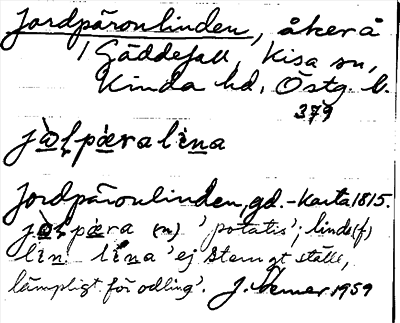 Jordpäronlinden, åker å
1 Gäddefall, Kisa sn,
Kinda hd, Östg. l.
379
jo̱ļpæ̱rali̱na
Jordpäronlinden, gd.-karta 1815.
jo̱ļpæ̱ra (n) 'potatis'; linde (f)
li̱n li̱na 'ej stenigt ställe,
lämpligt för odling'. J. Nemer 1959